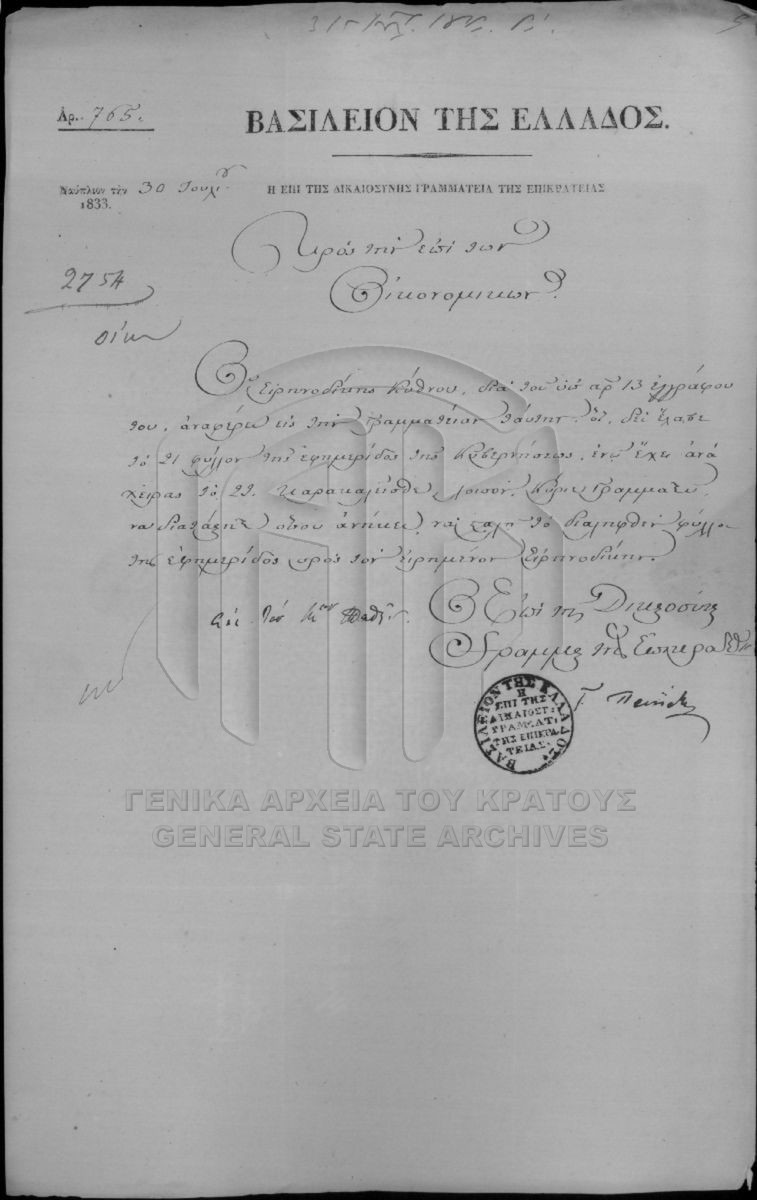 Ἀρ. 765.
ΒΑΣΙΛΕΙΟΝ ΤΗΣ ΕΛΛΑΔΟΣ.
Ναύπλιον τὴν 30 Ἰουλίου
1833.
Η ΕΠΙ ΤΗΣ ΔΙΚΑΙΟΣΥΝΗΣ ΓΡΑΜΜΑΤΕΙΑ ΤΗΣ ΕΠΙΚΡΑΤΕΙΑΣ
Πρὸς τὴν ἐπὶ τῶν
Οἰκονομικῶν.
2754
οἰκ
Ὁ Εἰρηνοδίκης Κύθνου, διὰ τοῦ ὑπ ἀρ 13 ἐγγράφου
του, ἀναφέρει εἰς τὴν Γραμματείαν ταύτην ὅτι δὲν ἔλαβε
τὸ 21 φύλλον τῆς ἐφημερίδος τῆς Κυβερνήσεως, ἐνῷ ἔχει ἀνὰ
χεῖρας τὸ 22. Παρακαλεῖσθε λοιπὸν, Κύριε Γραμματεῦ,
νὰ διατάξητε ὅπου ἀνήκει, νὰ σταλῇ τὸ διαληφθὲν φύλλον
τῆς ἐφημερίδος πρὸς τὸν εἰρημένον Εἰρηνοδίκην.
Ὁ Ἐπὶ τῆς Δικαιοσύνης
Γραμματεὺς τῆς Ἐπικρατείας
ΒΑΣΙΛΕΙΟΝ ΤΗΣ ΕΛΛΑΔΟΣ
Η
ΕΠΙ ΤΗΣ
ΔΙΚΑΙΟΣΥ:
ΓΡΑΜΜΑΤ:
ΤΗΣ ΕΠΙΚΡΑ
ΤΕΙΑΣ.
ΓΕΝΙΚΑ ΑΡΧΕΙΑ ΤΟΥ ΚΡΑΤΟΥΣ
GENERAL STATE ARCHIVES